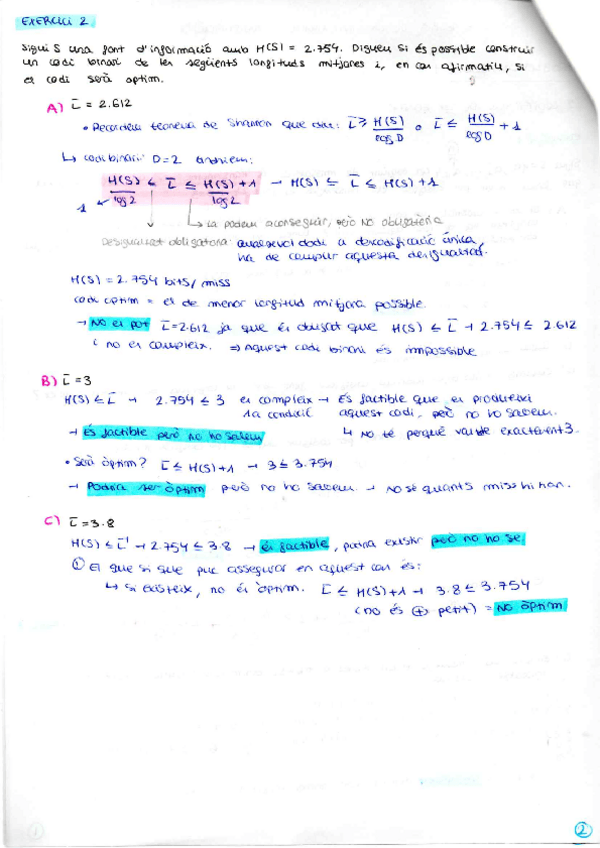 EXERCICI 2
Sigui S una font d'informació amb H(S) = 2.754. Digueu si és possible construir
un codi binari de les següents longituds mitjanes i, en cas afirmatiu, si
el codi serà òptim.
A) L̄ = 2.612
• Recordem teorema de Shannon que diu: L̄ ≥ H(S)/log D o L̄ ≤ H(S)/log D + 1
↳ codi binari D=2 tindríem:
H(S)/log 2 ≤ L̄ ≤ H(S)/log 2 + 1 → H(S) ≤ L̄ ≤ H(S) + 1
1
↳ la podem aconseguir, però NO obligatòria
Desigualtat obligatòria: qualsevol codi a descodificació única
ha de complir aquesta desigualtat.
H(S) = 2.754 bits/miss
codi òptim = el de menor longitud mitjana possible.
→ No es pot L̄=2.612 ja que és obligat que H(S) ≤ L̄ → 2.754 ≤ 2.612
i no es compleix. ⇒ Aquest codi binari és impossible
B) L̄ = 3
H(S) ≤ L̄ → 2.754 ≤ 3 es compleix → És factible que es produeixi
1a condició aquest codi, però no ho sabem.
→ És factible però no ho sabem ↳ No té perquè valdre exactament 3.
• Serà òptim? L̄ ≤ H(S)+1 → 3 ≤ 3.754
→ Podria ser òptim però no ho sabem → No sé quants miss hi han.
C) L̄ = 3.8
H(S) ≤ L̄ → 2.754 ≤ 3.8 → és factible, podria existir però no ho sé
① El que si que puc assegurar en aquest cas és:
↳ si existeix, no és òptim. L̄ ≤ H(S)+1 → 3.8 ≤ 3.754
(no és ⊕ petit) = No òptim
2